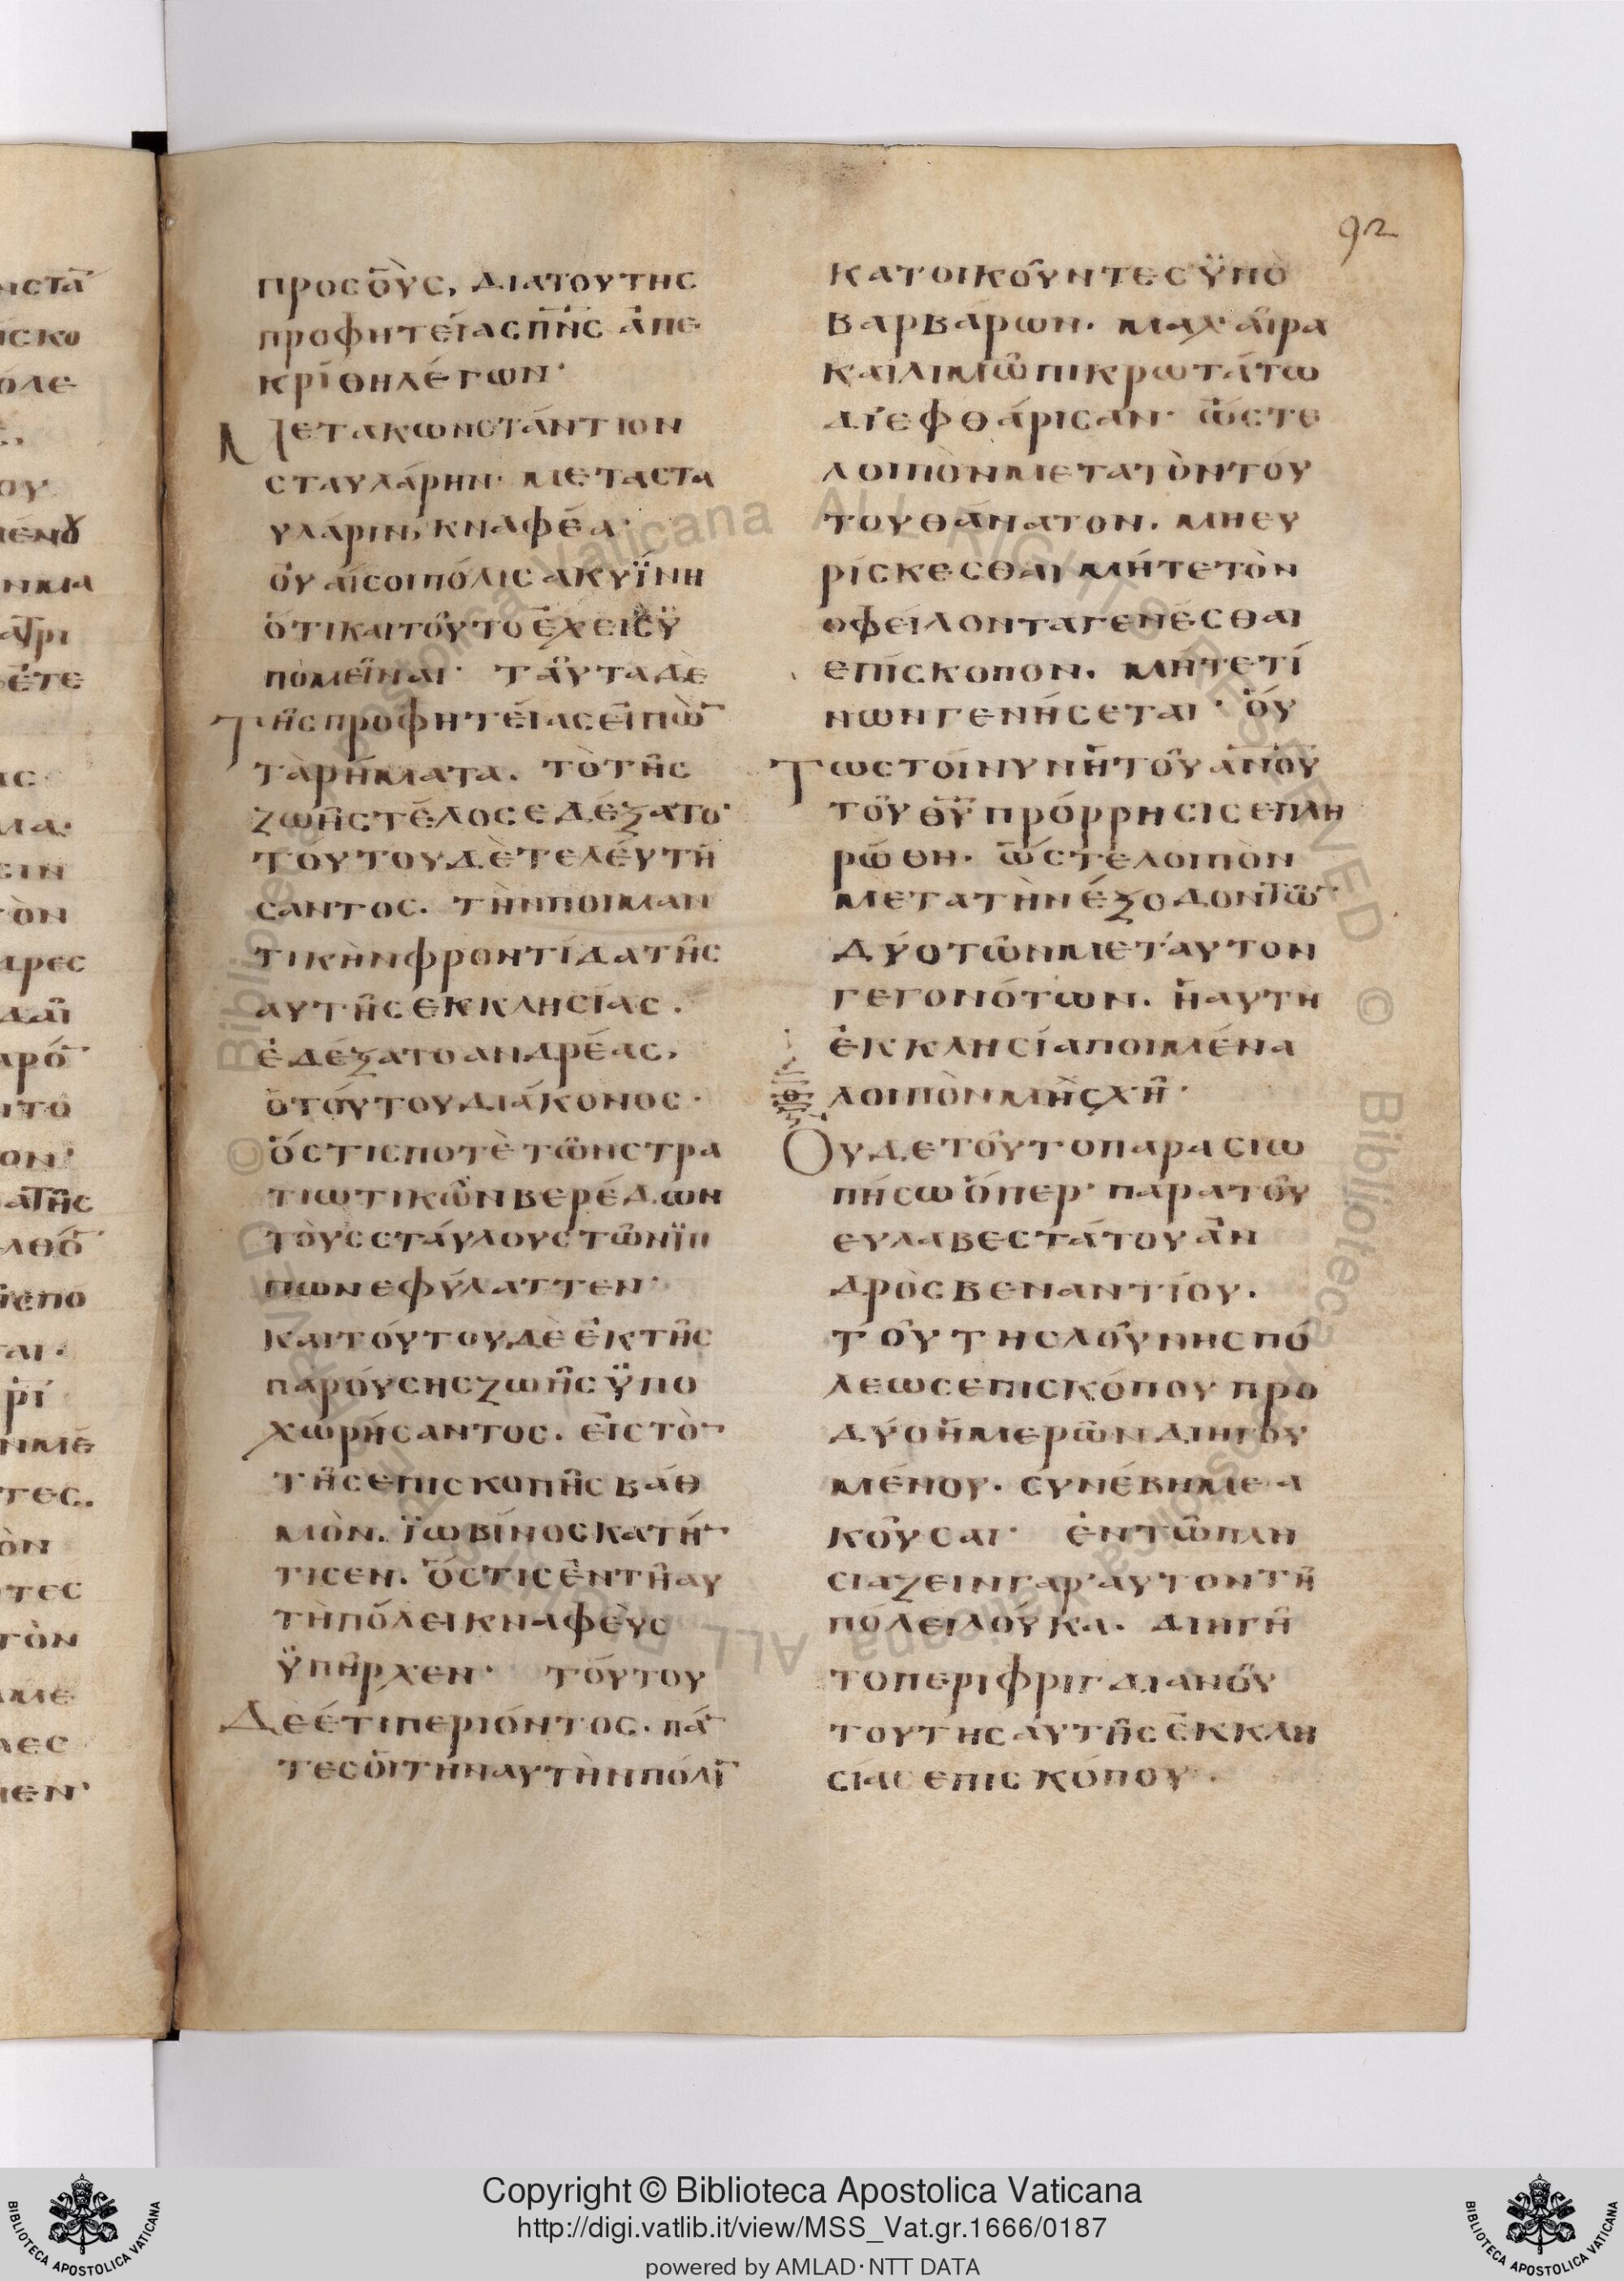 92
προσοὺς, διατουτης
προφητείας πν̅ς ἀπε
κρίθη λέγων·
Μετακωνστάντιον
σταυλάρην· μεταστα
υλάριν, κναφέα·
οὐαί σοι πόλις ακυΐνη
ὅτι καιτοῦτο ἔχεις ϋ
πομεῖναι· ταῦτα δὲ
Τῆς προφητείας εἰπὼ̅
τὰ ρήματα. τὸ τῆς
ζωῆς τέλος εδέξατο·
τουτου δὲ τελέυτη
σαντος. τὴν ποιμαν
τικὴν φροντίδα τῆς
αυτῆς εκκλησίας.
ἐδέξατο ανδρέας,
ὁ τούτου διάκονος·
ὅστις ποτὲ τῶν στρα
τιωτικῶν βερέδων
τοὺς στάυλους τῶν ϊπ
πων εφύλαττεν·
και τούτου δὲ ἐκ τῆς
παρούσης ζωῆς ϋπο
χωρήσαντος. εἰς τὸ̅
τῆς επισκοπῆς βαθ
μὸν. ϊωβίνος κατή̅
τισεν. ὅστις ἐν τῆ αυ
τὴ πόλει κναφεὺς
ϋπῆρχεν· τούτου
Δε έτι περιόντος. πά̅
τες ὁι τὴν αυτὴν πόλι̅
κατοικοῦντες ϋπὸ
βαρβάρων. μαχαῖρα
και λιμῶ πικρωτάτω
διεφθάρισαν· ὥστε
λοιπὸν μετα τὸν τού
του θάνατον. μη ευ
ρίσκεσθαι μήτε τὸν
οφείλοντα γενέσθαι
επίσκοπον. μητε τί
νων γενήσεται· ὅυ
Τως τοίνυν ἡ τοῦ αν̅ου
τοῦ θυ̅ πρόρρησις επλη
ρώθη. ὥστε λοιπὸν
μετα τὴν έξοδον τῶ̅
δύο τῶν μετ' αυτον
γεγονότων. ἡ αυτη
ἐκκλησία ποιμένα
θ λοιπὸν μὴ σχῆ·
Ουδε τοῦτο παρασιω
πήσω ὅπερ· παρα τοῦ
ευλαβεστάτου ἀν
δρὸς βεναντίου.
τοῦ της λούνης πό
λεως επισκόπου προ
δύο ἡμερῶν διηγου
μένου. συνέβη με α
κοῦσαι· ἐν τῶ πλη
σιαζειν γαρ' αυτον τῆ
πόλει λούκα. διηγῆ
το περι φριγδιανοῦ
του της αυτῆς ἐκκλη
σίας επισκόπου.
Copyright © Biblioteca Apostolica Vaticana
http://digi.vatlib.it/view/MSS_Vat.gr.1666/0187
powered by AMLAD·NTT DATA
BIBLIOTECA APOSTOLICA VATICANA
BIBLIOTECA APOSTOLICA VATICANA